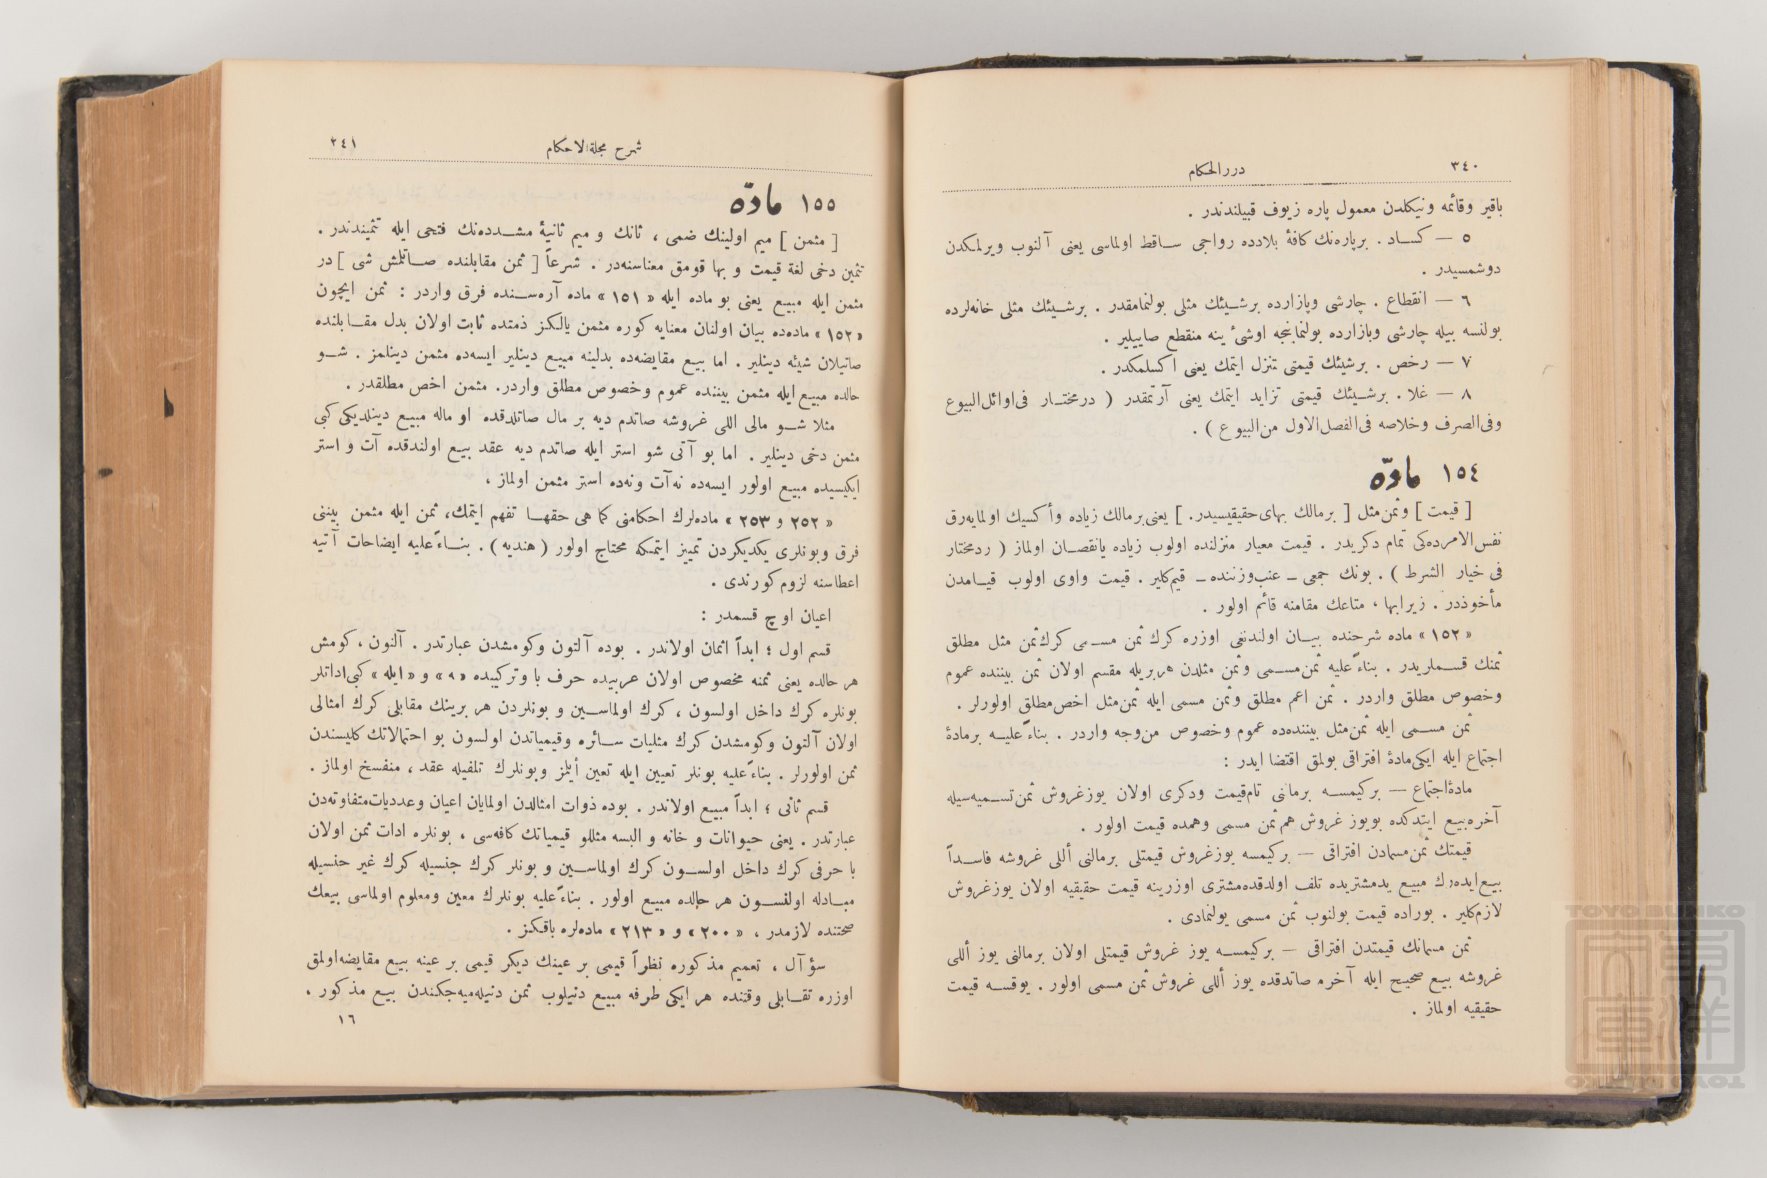 ٣٤٠
دررالحكام
باقير وقائمه ونيكلدن معمول پاره زيوف قبيلندندر .
٥ — كساد . برپاره‌نك كافهٔ بلادده رواجى ساقط اولماسى يعنى آلنوب ويرلمكدن
دوشمسيدر .
٦ — انقطاع . چارشى وپازارده برشيئك مثلى بولنمامقدر . برشيئك مثلى خانه‌لرده
بولنسه بيله چارشى وبازارده بولنمايجه اوشىٔ ينه منقطع صاييلير .
٧ — رخص . برشيئك قيمتى تنزل ايتمك يعنى اكسلمكدر .
٨ — غلا . برشيئك قيمتى تزايد ايتمك يعنى آرتمقدر ( درمختار فى‌اوائل‌البيوع
وفى‌الصرف وخلاصه فى‌الفصل‌الاول من‌البيوع ) .
١٥٤ مادّه
[ قيمت ] وثمن‌مثل [ برمالك بهاى‌حقيقيسيدر. ] يعنى‌برمالك زياده وأكسيك اولمايه‌رق
نفس‌الامرده‌كى تمام دكريدر . قيمت معيار منزلنده اولوب زياده يانقصان اولماز ( ردمختار
فى خيار الشرط ) . بونك جمعى ــ عنب‌وزننده ــ قيم‌كلير . قيمت واوى اولوب قيامدن
مأخوذدر . زيرابها ، متاعك مقامنه قائم اولور .
«١٥٢» ماده شرحنده بيان اولنديغى اوزره كرك ثمن مسمى كرك‌ثمن مثل مطلق
ثمنك قسملريدر . بناءً عليه ثمن‌مسمى وثمن مثلدن هربريله مقسم اولان ثمن بيننده عموم
وخصوص مطلق واردر . ثمن اعم مطلق وثمن مسمى ايله ثمن‌مثل اخص‌مطلق اولورلر .
ثمن مسمى ايله ثمن‌مثل بيننده‌ده عموم وخصوص من‌وجه واردر . بناءً عليه برمادهٔ
اجتماع ايله ايكى‌مادهٔ افتراقى بولمق اقتضا ايدر :
مادهٔ‌اجتماع — بركيمسه برمانى تام‌قيمت ودكرى اولان يوزغروش ثمن‌تسميه‌سيله
آخره‌بيع ايتدكده بويوز غروش هم‌ثمن مسمى وهمده قيمت اولور .
قيمتك ثمن‌مسمادن افتراقى — بركيمسه يوزغروش قيمتلى برمالنى أللى غروشه فاسداً
بيع‌ايده‌رك مبيع يدمشتريده تلف اولدقده‌مشترى اوزرينه قيمت حقيقيه اولان يوزغروش
لازم‌كلير . بوراده قيمت بولنوب ثمن مسمى يولنمادى .
ثمن مسمانك قيمتدن افتراقى — بركيمسه يوز غروش قيمتلى اولان برمالنى يوز أللى
غروشه بيع صحيح ايله آخره صاتدقده يوز أللى غروش ثمن مسمى اولور . يوقسه قيمت
حقيقيه اولماز .
شرح مجلة‌الاحكام
٢٤١
١٥٥ مادّه
[ مثمن ] ميم اولينك ضمى ، ثانك و ميم ثانيهٔ مشدده‌نك فتحى ايله تثميندندر .
تثمين دخى لغة قيمت و بها قومق معناسنه‌در . شرعاً [ ثمن مقابلنده صاتلمش شى ] در
مثمن ايله مبيع يعنى بو ماده ايله «١٥١» ماده آره‌سنده فرق واردر : ثمن ايچون
«١٥٢» ماده‌ده بيان اولنان معنايه كوره مثمن يالكز ذمتده ثابت اولان بدل مقابلنده
صاتيلان شيئه دينلير . اما بيع مقايضه‌ده بدلينه مبيع دينلير ايسه‌ده مثمن دينلمز . شو
حالده مبيع ايله مثمن بيننده عموم وخصوص مطلق واردر. مثمن اخص مطلقدر .
مثلا شو مالى اللى غروشه صاتدم ديه بر مال صاتلدقده او ماله مبيع دينلديكى كبى
مثمن دخى دينلير . اما بو آتى شو استر ايله صاتدم ديه عقد بيع اولندقده آت و استر
ايكيسيده مبيع اولور ايسه‌ده نه‌آت ونه‌ده استر مثمن اولماز ،
«٢٥٢ و ٢٥٣» ماده‌لرك احكامنى كما هى حقها تفهم ايتمك، ثمن ايله مثمن بيننى
فرق وبونلرى يكديكردن تمييز ايتمكه محتاج اولور ( هنديه ) . بناءً عليه ايضاحات آتيه
اعطاسنه لزوم كورندى .
اعيان اوچ قسمدر :
قسم اول ؛ ابداً اثمان اولاندر . بوده آلتون وكومشدن عبارتدر . آلتون ، كومش
هر حالده يعنى ثمنه مخصوص اولان عربيده حرف با وتركيده «ه» و «ايله» كبى‌اداتلر
بونلره كرك داخل اولسون ، كرك اولماسين و بونلردن هر برينك مقابلى كرك امثالى
اولان آلتون وكومشدن كرك مثليات سائره وقيمياتدن اولسون بو احتمالاتك كليسندن
ثمن اولورلر . بناءً عليه بونلر تعيين ايله تعين أيلمز وبونلرك تلفيله عقد ، منفسخ اولماز .
قسم ثانى ؛ ابداً مبيع اولاندر . بوده ذوات امثالدن اولمايان اعيان وعدديات‌متفاوته‌دن
عبارتدر . يعنى حيوانات و خانه و البسه مثللو قيمياتك كافه‌سى ، بونلره ادات ثمن اولان
با حرفى كرك داخل اولسون كرك اولماسين و بونلر كرك جنسيله كرك غير جنسيله
مبادله اولنسون هر حالده مبيع اولور . بناءً عليه بونلرك معين ومعلوم اولماسى بيعك
صحتنده لازمدر ، «٢٠٠» و «٢١٣» ماده‌لره باقكز .
سؤآل ، تعميم مذكوره نظراً قيمى بر عينك ديكر قيمى بر عينه بيع مقايضه‌اولمق
اوزره تقابلى وقتنده هر ايكى طرفه مبيع دنيلوب ثمن دنيله‌ميه‌جكندن بيع مذكور ،
١٦
TOYO BUNKO